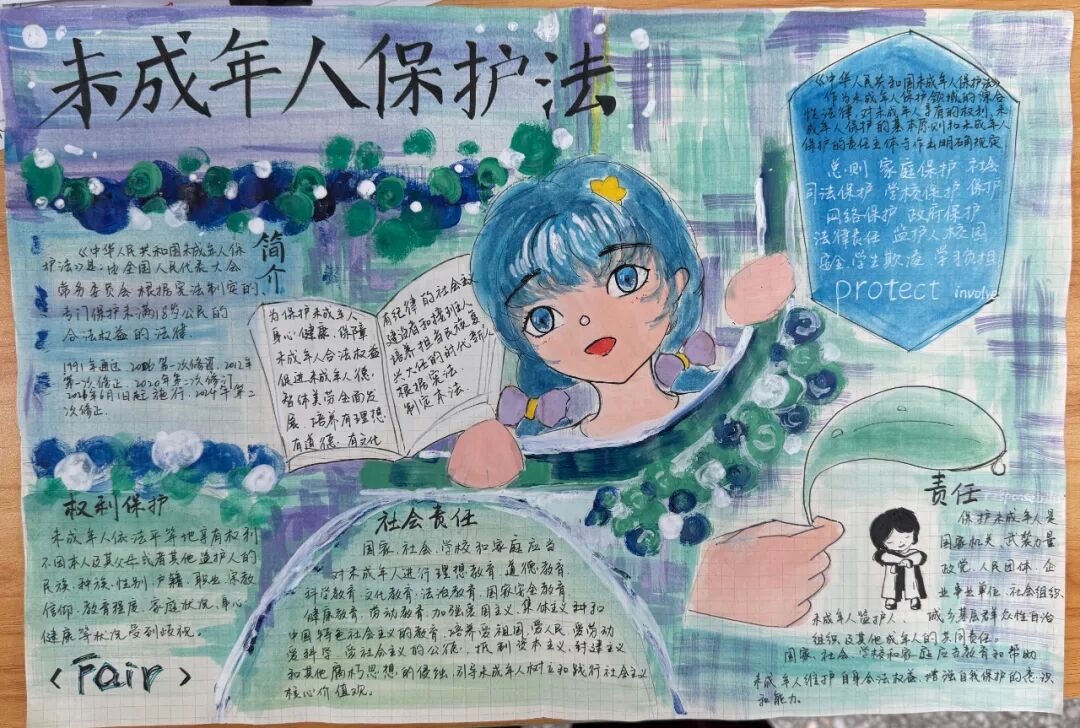 未成年人保护法
《中华人民共和国未成年人保护法》
作为未成年人保护领域的综合
性法律,对未成年人享有的权利、未
成年人保护的基本原则和未成年人
保护的责任主体等作出明确规定
总则 家庭保护 社会
司法保护 学校保护 保护
网络保护 政府保护
法律责任 监护人 校园
安全 学生欺凌 学习负担
protect involve
简介
《中华人民共和国未成年人保
护法》是,由全国人民代表大会
常务委员会根据宪法制定的、
专门保护未满18岁公民的
合法权益的法律
1991年通过 2006第一次修署,2012年
第一次修正,2020年第二次修订
2024年6月1日起施行,2024年第二
次修正.
为保护未成年人
身心健康、保障
未成年人合法权益
促进未成年人德,
智体美劳全面发
展、培养有理想.
有道德、有文化
有纪律的社会主义
建设者和接班人
培养担当民族复
兴大任的时代新人
根据宪法.
制定本法.
权利保护
未成年人依法平等地享有权利
不因本人及其父母或者其他监护人的
民族、种族、性别、户籍、职业、宗教
信仰、教育程度、家庭状况、身心
健康等状况受到歧视。
<Fair>
社会责任
国家、社会、学校和家庭应当
对未成年人进行理想教育、道德教育
科学教育、文化教育、法治教育、国家安全教育
健康教育、劳动教育、加强爱国主义、集体主义和
中国特色社会主义的教育,培养爱祖国、爱人民、爱劳动
爱科学、爱社会主义的公德,抵制资本主义、封建主义
和其他腐朽思想的侵蚀,引导未成年人树立和践行社会主义
核心价值观。
责任
保护未成年人是
国家机关、武装力量
政党、人民团体、企
业事业单位、社会组织、
未成年人监护人、城乡基层群众性自治
组织及其他成年人的共同责任。
国家、社会、学校和家庭应当教育和帮助
未成年人维护自身合法权益、增强自我保护的意识
和能力。